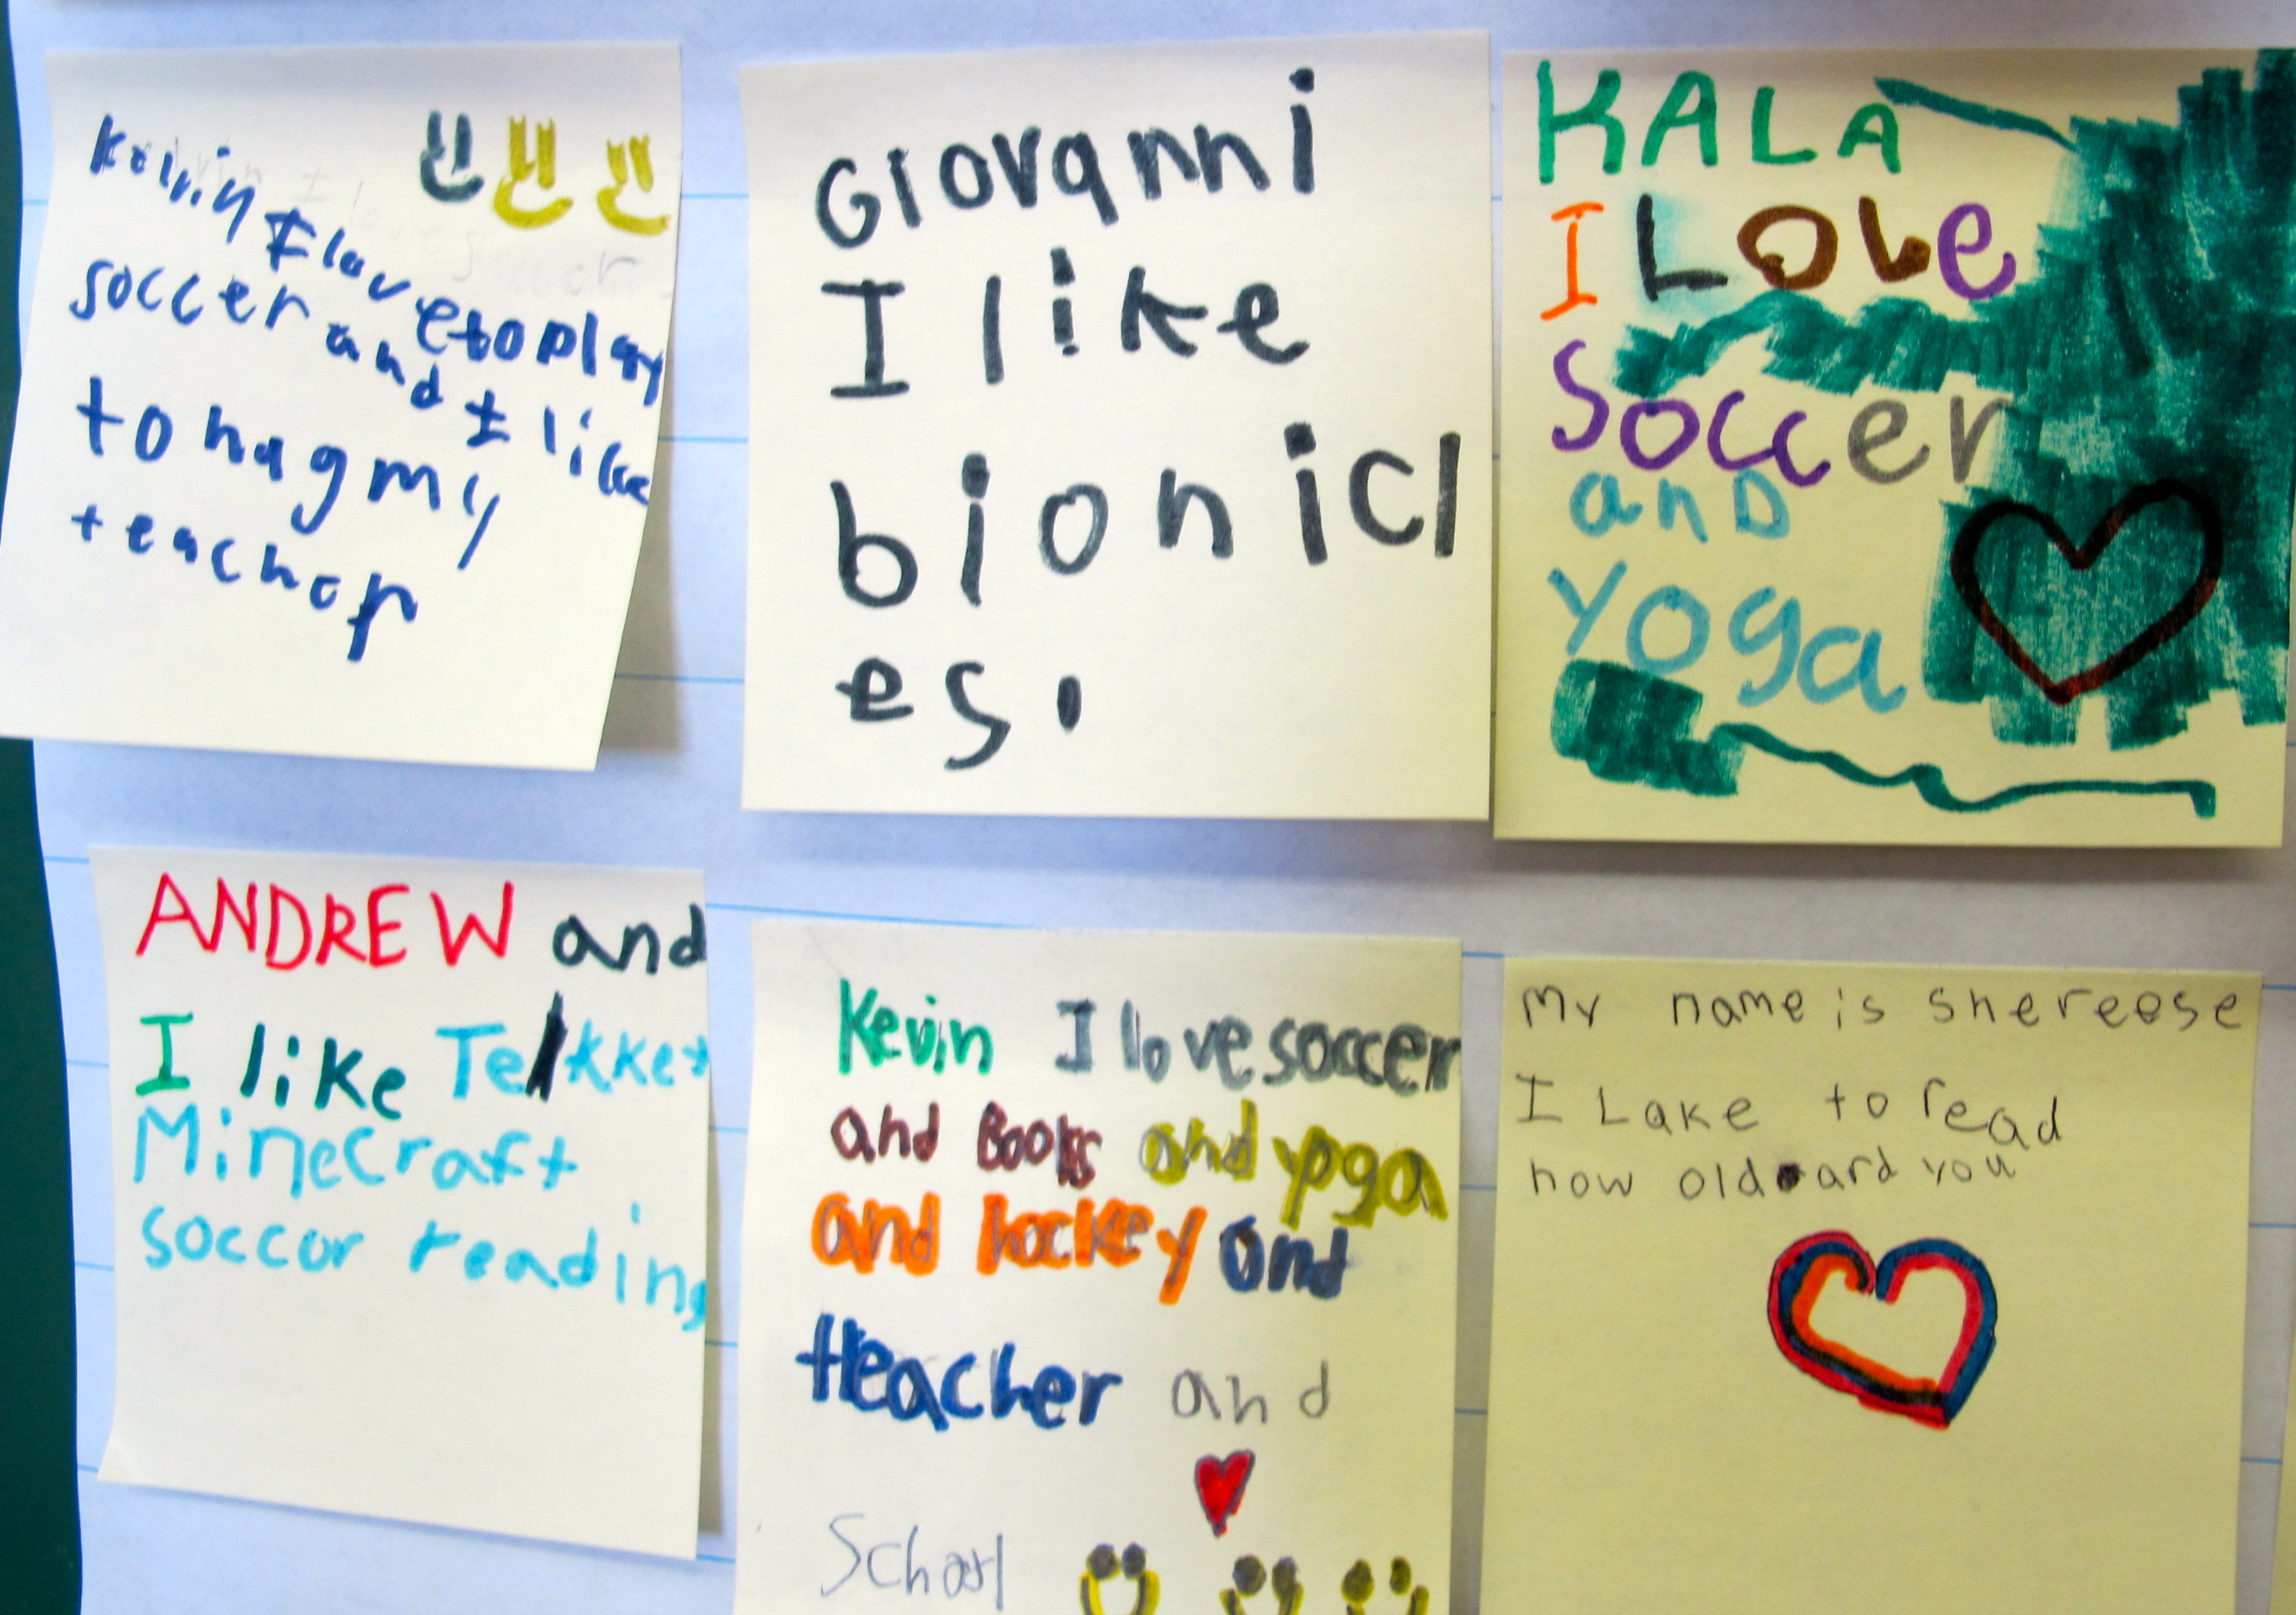 Kelvin I love to play
soccer and I like
to hug my
teacher
Giovanni
I like
bionicl
es.
KALA
I Love
Soccer
and
yoga
ANDREW and
I like Tekket
Minecraft
soccor reading
Kevin I love soccer
and Books and yoga
and hockey and
teacher and
School
My name is shereese
I Lake to read
how old ard you